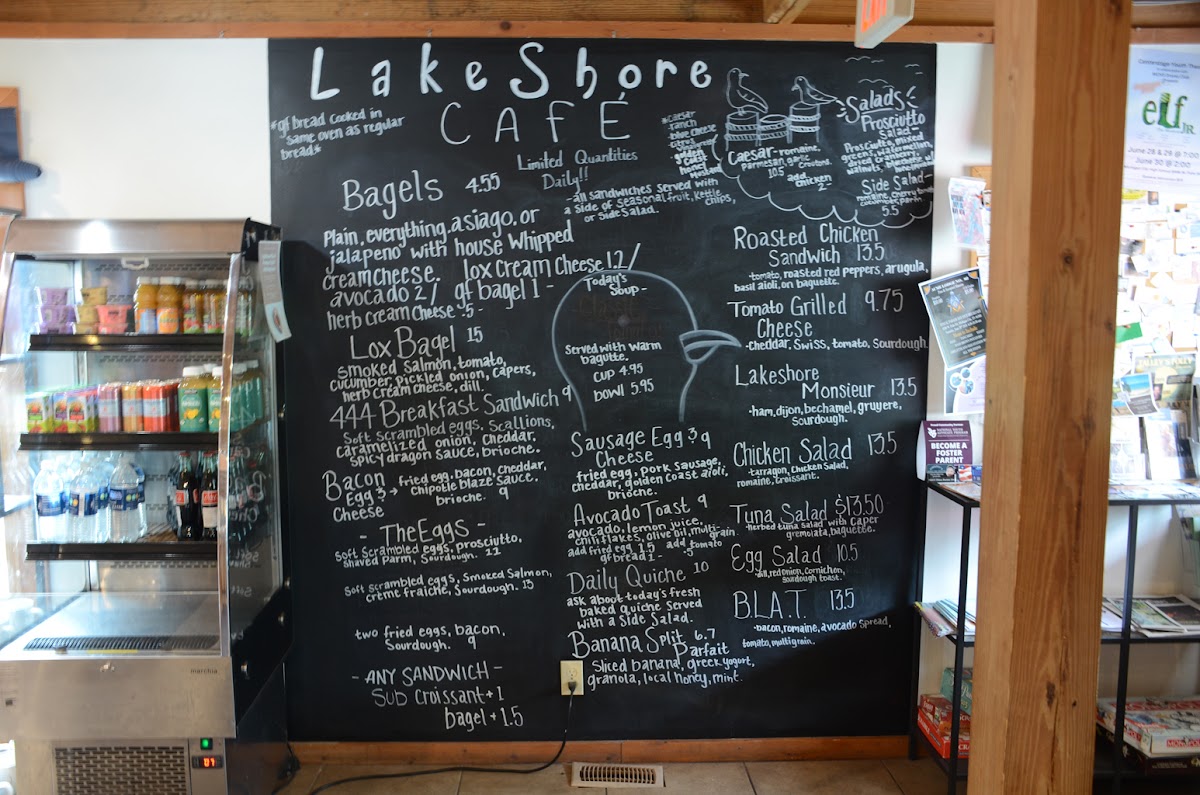 LakeShore
CAFÉ
*gf bread cooked in
same oven as regular
bread.*
Limited Quantities
Daily!!
-all sandwiches served with
a side of seasonal fruit, kettle chips,
or side salad.
Bagels 4.55
Plain, everything, asiago, or
jalapeño with house whipped
creamcheese. lox cream cheese 1.2/
avocado 2/ gf bagel 1-
herb cream cheese .5-
Lox Bagel 15
smoked salmon, tomato,
cucumber, pickled onion, capers,
herb cream cheese, dill.
444 Breakfast Sandwich 9
Soft scrambled eggs, scallions,
caramelized onion, cheddar,
spicy dragon sauce, brioche.
Bacon
Egg &
Cheese
fried egg, bacon, cheddar,
chipotle blaze sauce,
brioche. 9
- The Eggs -
soft scrambled eggs, prosciutto,
shaved parm, sourdough. 11
soft scrambled eggs, smoked salmon,
crème fraiche, sourdough. 13
two fried eggs, bacon,
sourdough. 9
- ANY SANDWICH -
SUB croissant +1
bagel +1.5
Today's
Soup-
Served with warm
bagutte.
CUP 4.95
BOWl 5.95
Sausage Egg & 9
Cheese
fried egg, pork sausage,
cheddar, golden coast aioli,
brioche.
Avocado Toast 9
avocado, lemon juice,
chili flakes, olive oil, multi-
grain.
add fried egg 1.5 add tomato
gf bread 1-
Daily Quiche 10
ask about today's fresh
baked quiche served
with a side salad.
Banana Split 6.7
Parfait
Sliced banana, greek yogurt,
granola, local honey, mint.
*caesar
-ranch
-blue cheese
-citrus
golden
coast
honey
mustard
Caesar- romaine,
parmesan, garlic
croutons.
10.5
add
chicken
2-
-Salads-
Prosciutto
Salad-
Prosciutto, mixed
greens, watermelon,
dried cranberry,
walnuts,
Side Salad-
romaine, cherry tomato,
cucumber, parm
5.5
Roasted Chicken
Sandwich 13.5
-tomato, roasted red peppers, arugula,
basil aioli, on baguette.
Tomato Grilled 9.75
Cheese
-cheddar, Swiss, tomato, sourdough.
Lakeshore
Monsieur 13.5
-ham, dijon, bechamel, gruyere,
sourdough.
Chicken Salad 13.5
-tarragon, Chicken Salad,
romaine, croissant.
Tuna Salad $13.50
-herbed tuna salad with caper
gremolata, baguette.
Egg Salad 10.5
-dill, red onion, cornichon,
sourdough toast.
B.L.A.T. 13.5
-bacon, romaine, avocado spread,
tomato, multigrain.
marchia
elf JR.
June 28 & 29 @ 7:00
June 30 @ 2:00
BECOME A
FOSTER
PARENT
MONOPOLY